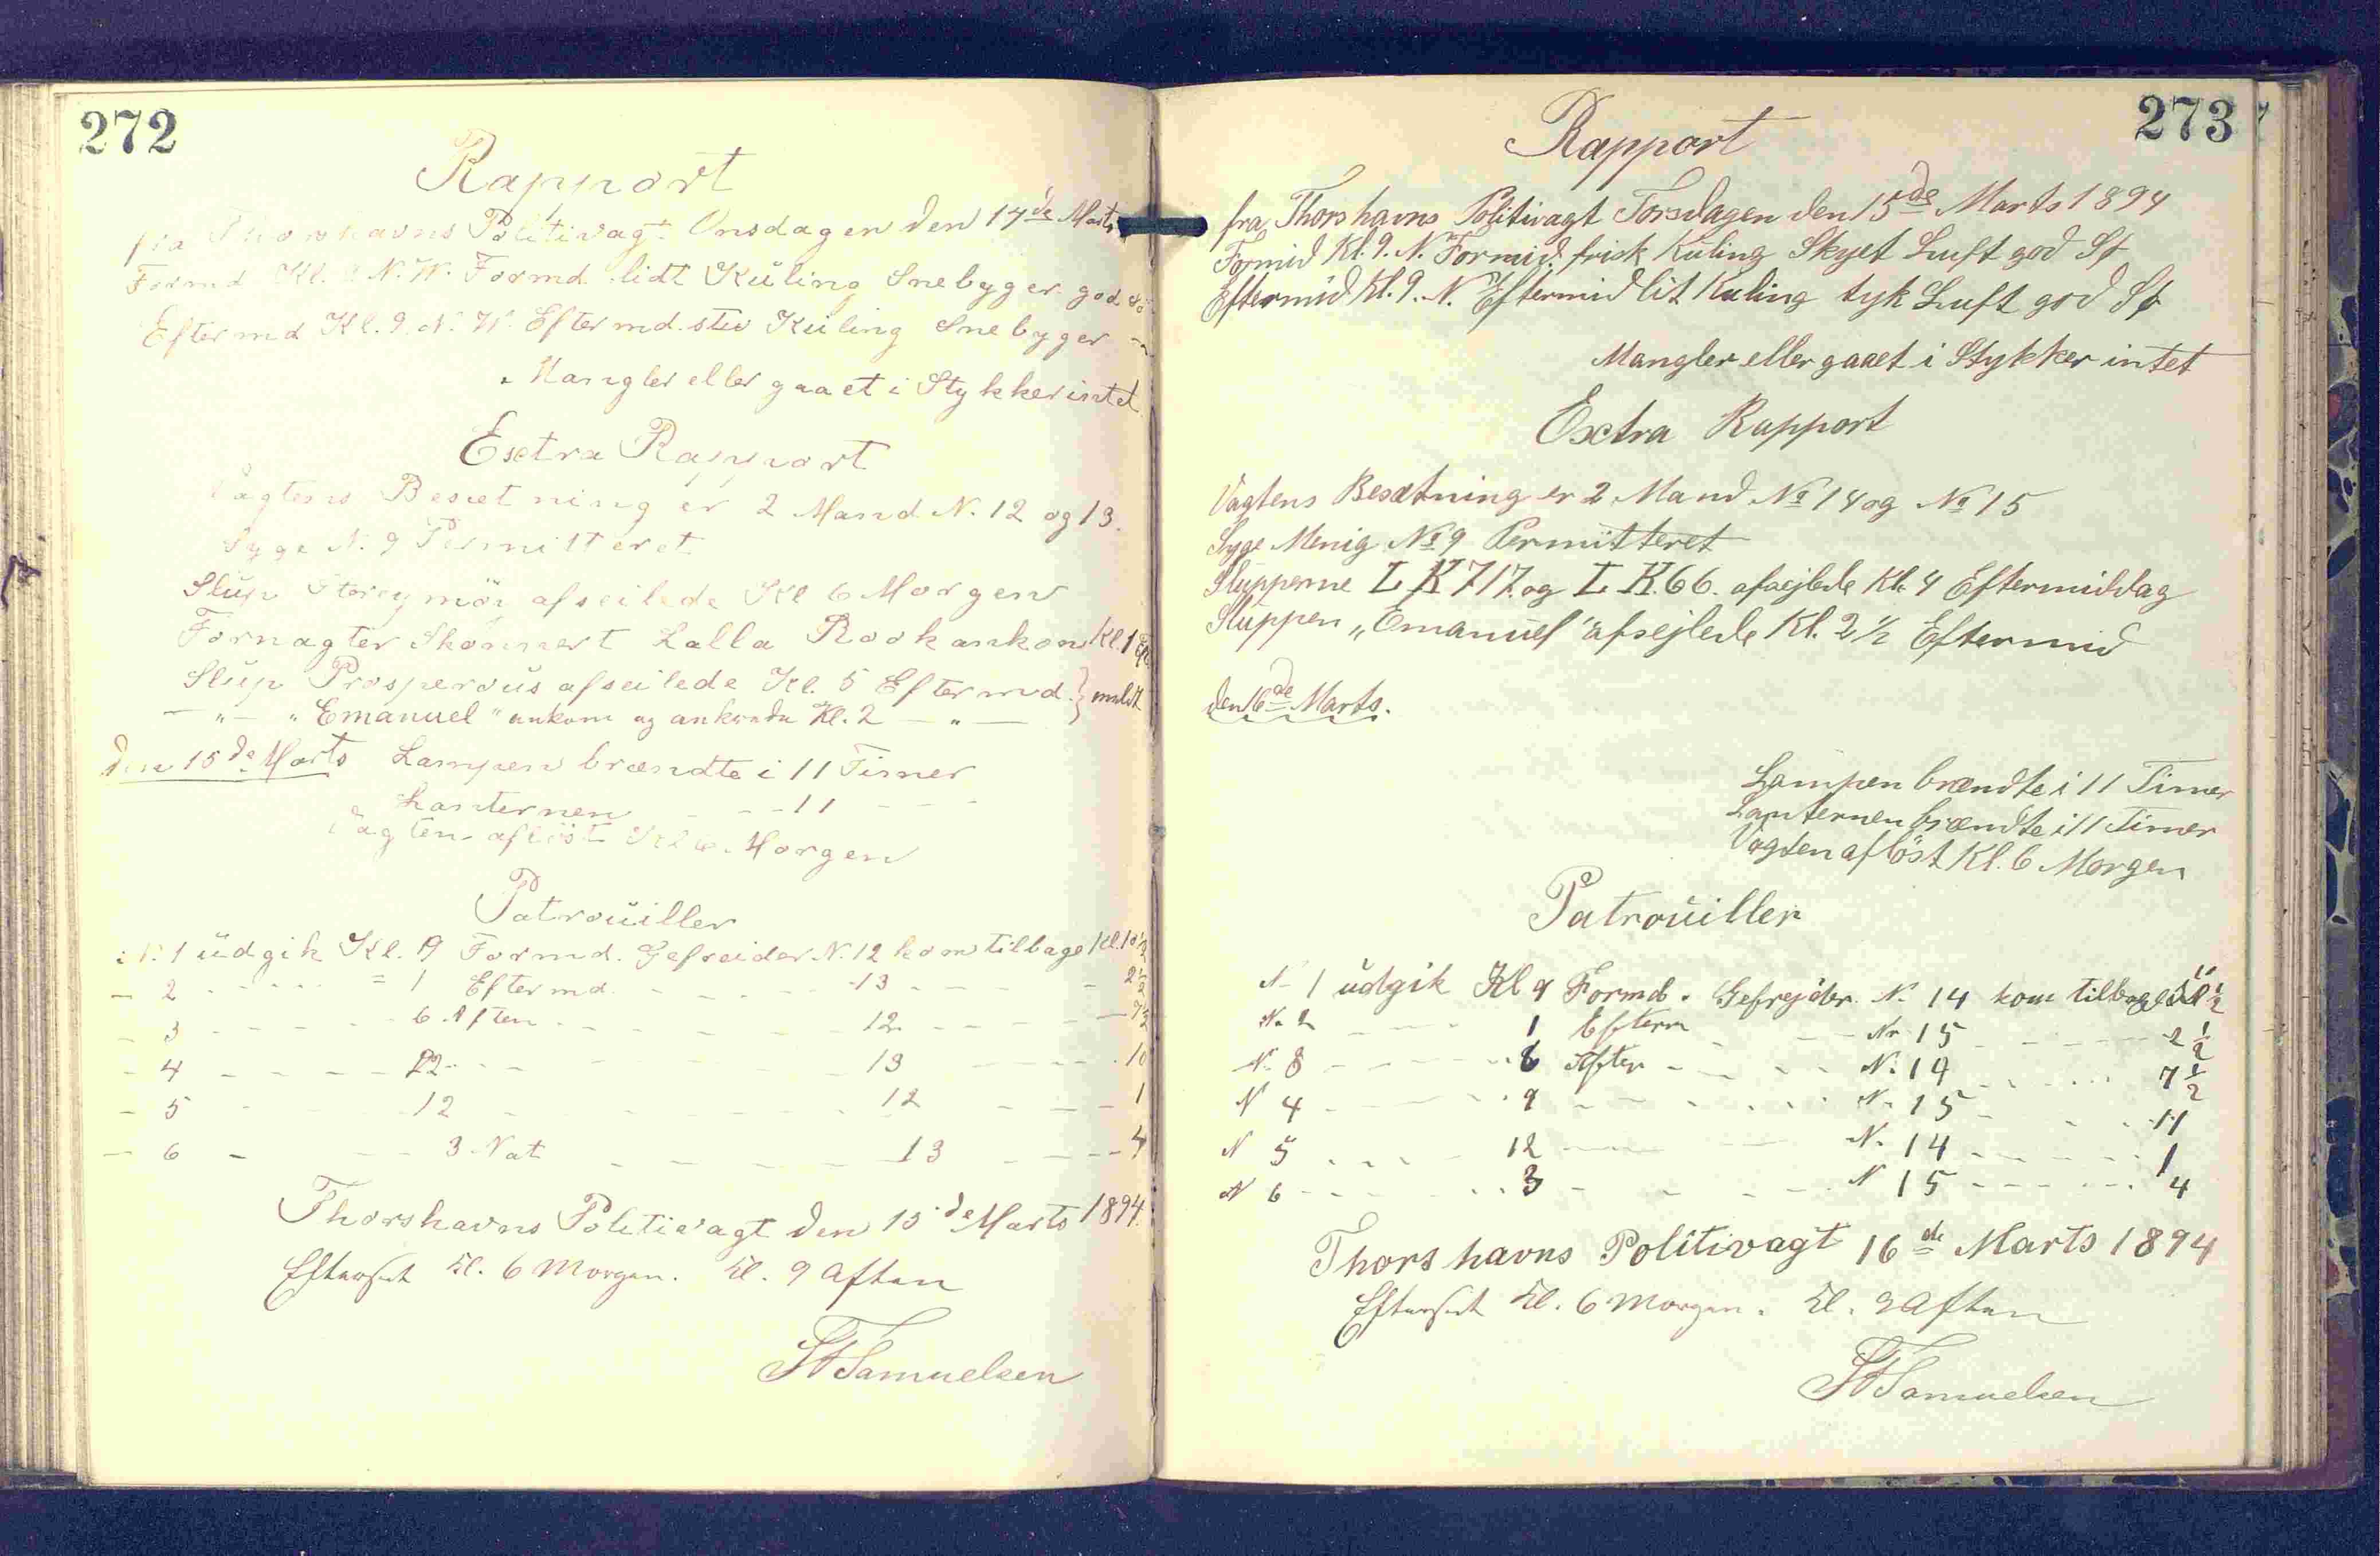 272
Rapport
fra Thorshavns Politivagt Onsdagen den 14de Marts
Formd Kl. 9 N.W. Formd. lidt Küling Snebyger god
Eftermd Kl. 9. N. W. Eftermd. stiv Küling Snebyger
Mangler eller gaaet i Stykker intet
Esctra Rapport
Vagtens Besætning er 2 Mand N. 12 og 13.
Syge N. 9 Permitteret
Slup afseilede Kl 6 Morgen
Skonnert Lalla Rook ankom Kl. 1
Slup Prosperous afseilede Kl. 5 Eftermd.
— " — "Emanuel" ankom og ankrede Kl. 2 — " —
den 15de Marts Lampen brændte i 11 Timer
Lanternen - - 11 - -
Vagten aflöst Kl 6. Morgen
Patroüiller
N. 1 üdgik Kl. 9 Formd. Gefreider N. 12 kom tilbage Kl. 10½
— 2 - - - - = 1 Eftermd. - - - 13 - - - 2½
— 3 - - - - 6 Aften - - - 12 - - - 7½
— 4 - - - - - - - 13 - - - 10
— 5 - - - - 12 - - - 12 - - - 1
— 6 - - - - 3 Nat - - - 13 - - - 4
Thorshavns Politivagt den 15de Marts 1894.
Efterset Kl. 6 Morgen. Kl. 9 Aften
Samuelsen
273
Rapport
fra Thorshavns Politivagt Torsdagen den 15de Marts 1894
Formid Kl. 9. N. Formid. frisk Kuling Skyet Luft god St
Eftermid Kl. 9. N. Eftermid lit Kuling tyk Luft god St
Mangler eller gaaet i Stykker intet
Esctra Rapport
Vagtens Besætning er 2 Mand No 14 og No 15
Syge Menig No 9 Permitteret
Slupperne L K 717. og L. K. 66. afsejlede Kl. 4 Eftermiddag
Sluppen „Emanuel" afsejlede Kl. 2 ½ Eftermid
den 16de Marts.
Lampen brændte i 11 Timer
Lanternen brændte i 11 Timer
Vagten aflöst Kl. 6 Morgen
Patroüiller
N. 1 üdgik Kl 9 Formd. Gefrejder N. 14 kom tilbage 10 ½
N. 2 - - - 1 Efterm - - Nr 15 - - - 2 ½
N. 3 - - - 6 Aften - - N. 14 - - - 7 ½
N 4 - - - 9 - - - N. 15 - - - 11
N 5 - - - 12 - - - N. 14 - - - 1
N 6 - - - 3 - - - N 15 - - - 4
Thorshavns Politivagt 16de Marts 1894
Efterset Kl. 6 Morgen. Kl. 9 Aften
Samuelsen